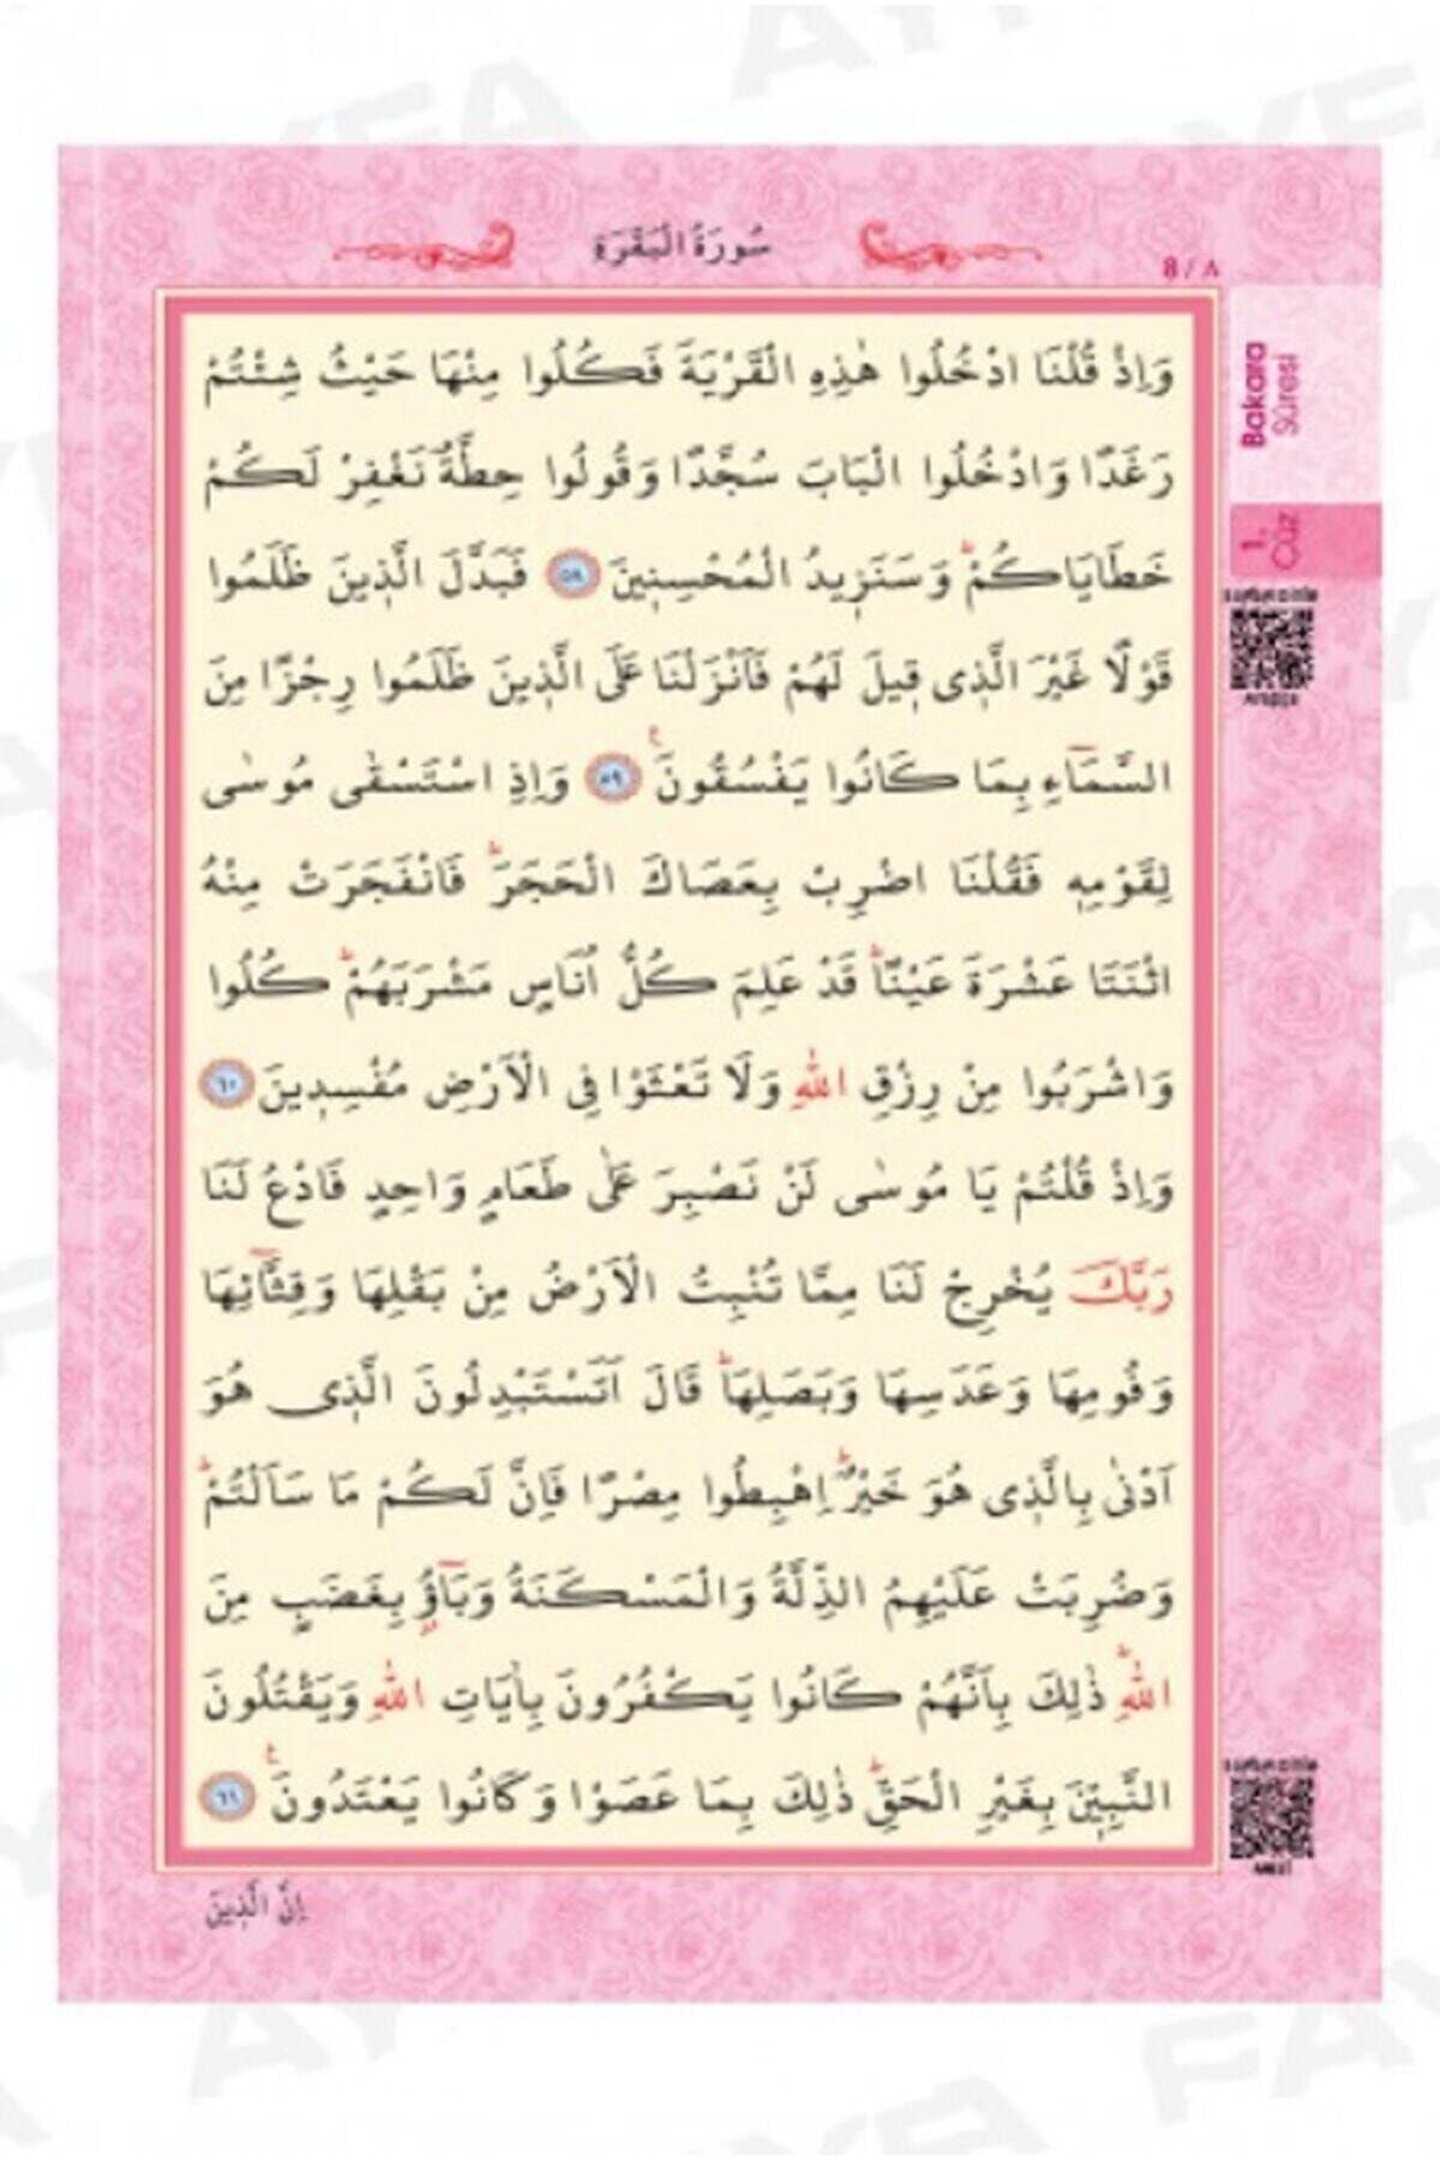 سُورَةُ الْبَقَرَةِ
8 / ٨
وَاِذْ قُلْنَا ادْخُلُوا هٰذِهِ الْقَرْيَةَ فَكُلُوا مِنْهَا حَيْثُ شِئْتُمْ
رَغَدًا وَادْخُلُوا الْبَابَ سُجَّدًا وَقُولُوا حِطَّةٌ نَغْفِرْ لَكُمْ
خَطَايَاكُمْۜ وَسَنَز۪يدُ الْمُحْسِن۪ينَ ٥٨ فَبَدَّلَ الَّذ۪ينَ ظَلَمُوا
قَوْلًا غَيْرَ الَّذ۪ى ق۪يلَ لَهُمْ فَاَنْزَلْنَا عَلَى الَّذ۪ينَ ظَلَمُوا رِجْزًا مِنَ
السَّمَٓاءِ بِمَا كَانُوا يَفْسُقُونَ۟ ٥٩ وَاِذِ اسْتَسْقٰى مُوسٰى
لِقَوْمِه۪ فَقُلْنَا اضْرِبْ بِعَصَاكَ الْحَجَرَۜ فَانْفَجَرَتْ مِنْهُ
اثْنَتَا عَشْرَةَ عَيْنًاۜ قَدْ عَلِمَ كُلُّ اُنَاسٍ مَشْرَبَهُمْۜ كُلُوا
وَاشْرَبُوا مِنْ رِزْقِ اللّٰهِ وَلَا تَعْثَوْا فِى الْاَرْضِ مُفْسِد۪ينَ ٦٠
وَاِذْ قُلْتُمْ يَا مُوسٰى لَنْ نَصْبِرَ عَلٰى طَعَامٍ وَاحِدٍ فَادْعُ لَنَا
رَبَّكَ يُخْرِجْ لَنَا مِمَّا تُنْبِتُ الْاَرْضُ مِنْ بَقْلِهَا وَقِثَّٓائِهَا
وَفُومِهَا وَعَدَسِهَا وَبَصَلِهَاۜ قَالَ اَتَسْتَبْدِلُونَ الَّذ۪ى هُوَ
اَدْنٰى بِالَّذ۪ى هُوَ خَيْرٌۜ اِهْبِطُوا مِصْرًا فَاِنَّ لَكُمْ مَا سَاَلْتُمْۜ
وَضُرِبَتْ عَلَيْهِمُ الذِّلَّةُ وَالْمَسْكَنَةُ وَبَٓاؤُ۫ بِغَضَبٍ مِنَ
اللّٰهِۜ ذٰلِكَ بِاَنَّهُمْ كَانُوا يَكْفُرُونَ بِاٰيَاتِ اللّٰهِ وَيَقْتُلُونَ
النَّبِيّ۪نَ بِغَيْرِ الْحَقِّۜ ذٰلِكَ بِمَا عَصَوْا وَكَانُوا يَعْتَدُونَ۟ ٦١
اِنَّ الَّذ۪ينَ
Bakara
Sûresi
1.
Cüz